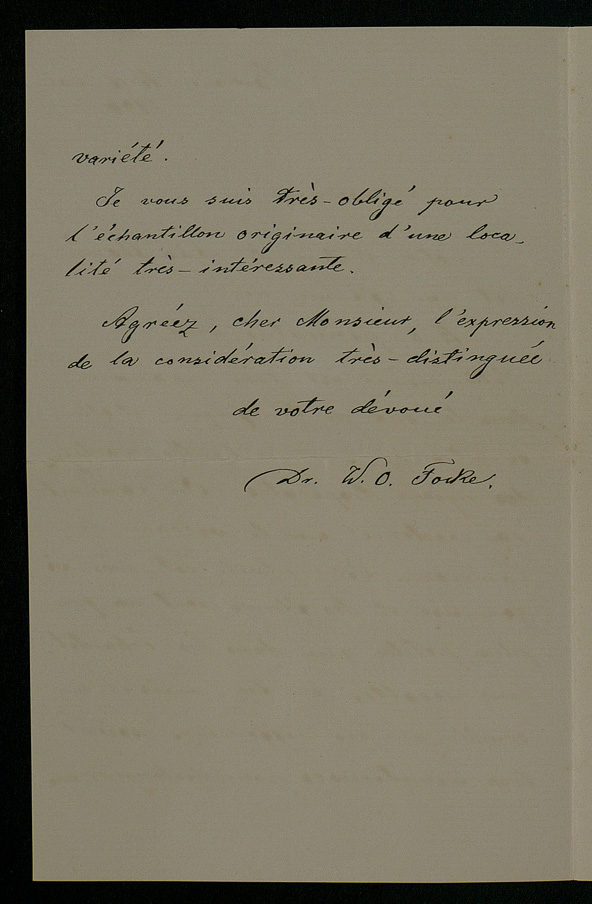 variété.
Je vous suis très-obligé pour
l'échantillon originaire d'une loca-
lité très-intéressante.
Agréez, cher Monsieur, l'expression
de la considération très-distinguée
de votre dévoué
Dr. W. O. Focke.